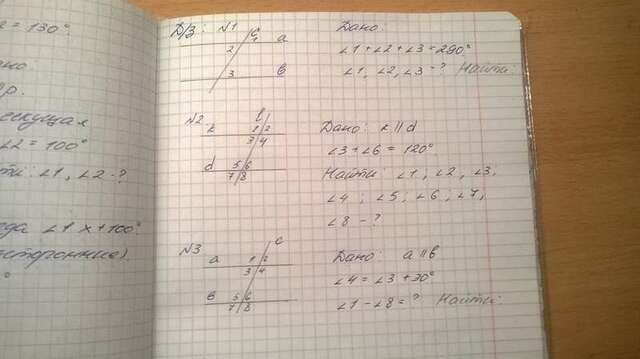 = 130°
Д/З: №1
с
1
а
2
3
в
Дано:
∠1+∠2+∠3=290°
∠1, ∠2, ∠3-? Найти:
№2
1 2
3 4
d
5 6
7 8
Дано: k || d
∠3+∠6=120°
Найти: ∠1, ∠2, ∠3,
∠4; ∠5; ∠6, ∠7,
∠8-?
№3
с
а
1 2
3 4
в
5 6
7 8
Дано: а || в
∠4=∠3+30°
∠1-∠8=? Найти:
р.
секущая
∠2=100°
ти: ∠1, ∠2-?
да ∠1 х+100°
сторонние).